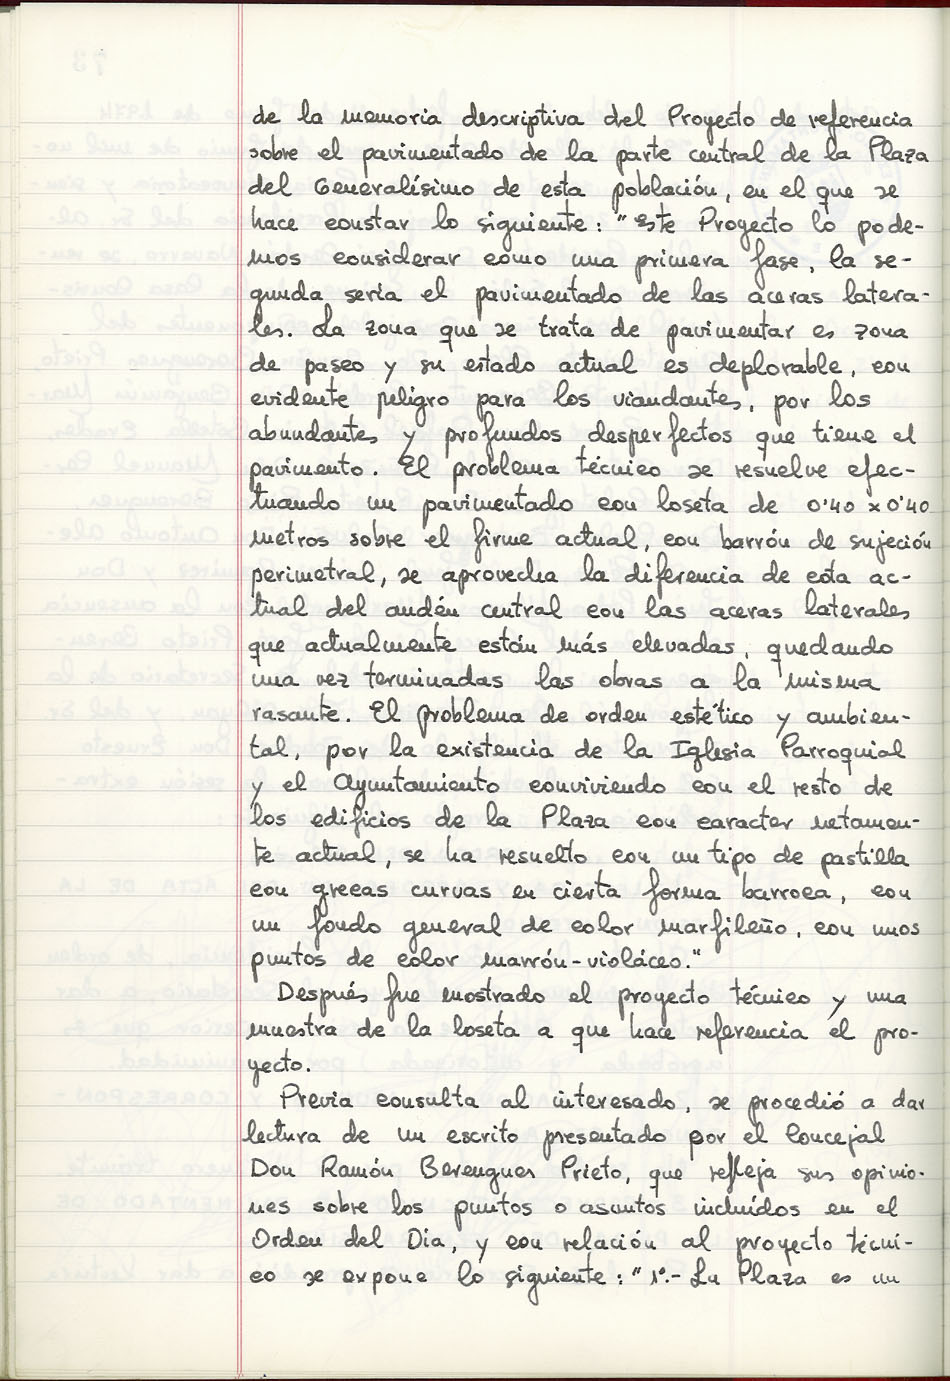 de la memoria descriptiva del Proyecto de referencia
sobre el pavimentado de la parte central de la Plaza
del Generalísimo de esta población, en el que se
hace constar lo siguiente: "Este Proyecto lo pode-
mos considerar como una primera fase, la se-
gunda seria el pavimentado de las aceras latera-
les. La zona que se trata de pavimentar es zona
de paseo y su estado actual es deplorable, con
evidente peligro para los viandantes, por los
abundantes y profundos desperfectos que tiene el
pavimento. El problema técnico se resuelve efec-
tuando un pavimentado con loseta de 0'40 x 0'40
metros sobre el firme actual, con barrón de sujeción
perimetral, se aprovecha la diferencia de cota ac-
tual del andén central con las aceras laterales
que actualmente están más elevadas, quedando
una vez terminadas las obras a la misma
rasante. El problema de orden estético y ambien-
tal, por la existencia de la Iglesia Parroquial
y el Ayuntamiento conviviendo con el resto de
los edificios de la Plaza con caracter netamen-
te actual, se ha resuelto con un tipo de pastilla
con grecas curvas en cierta forma barroca, con
un fondo general de color marfileño, con unos
puntos de color marrón-violáceo."
Después fue mostrado el proyecto técnico y una
muestra de la loseta a que hace referencia el pro-
yecto.
Previa consulta al interesado, se procedió a dar
lectura de un escrito presentado por el Concejal
Don Ramón Berenguer Prieto, que refleja sus opinio-
nes sobre los puntos o asuntos incluídos en el
Orden del Dia, y con relación al proyecto técni-
co se expone lo siguiente: "1º.- La Plaza es un